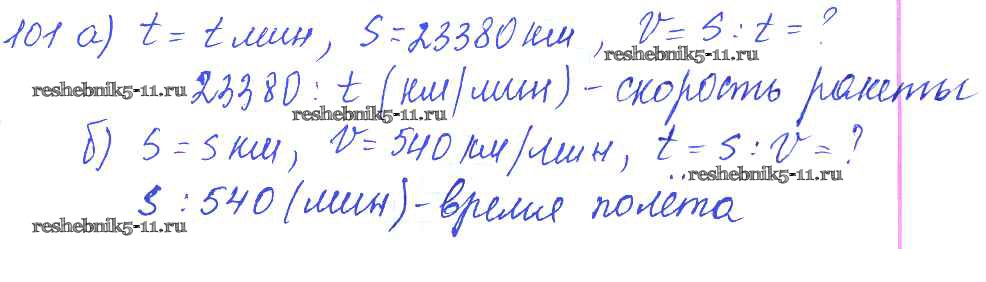 101 а) t = t мин, S = 23380 км, V = S : t = ?
reshebnik5-11.ru
reshebnik5-11.ru 23380 : t (км/мин) - скорость ракеты
reshebnik5-11.ru
б) S = s км, V = 540 км/мин, t = s : v = ?
reshebnik5-11.ru
s : 540 (мин) - время полёта
reshebnik5-11.ru